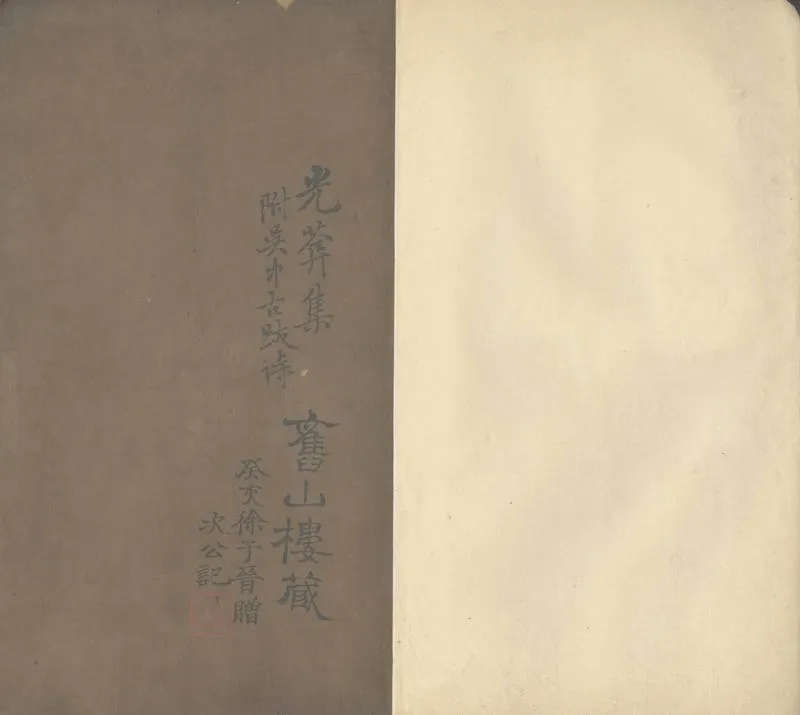 光葊集
附吳中古跡詩
舊山樓藏
癸亥徐子晉贈
次公記